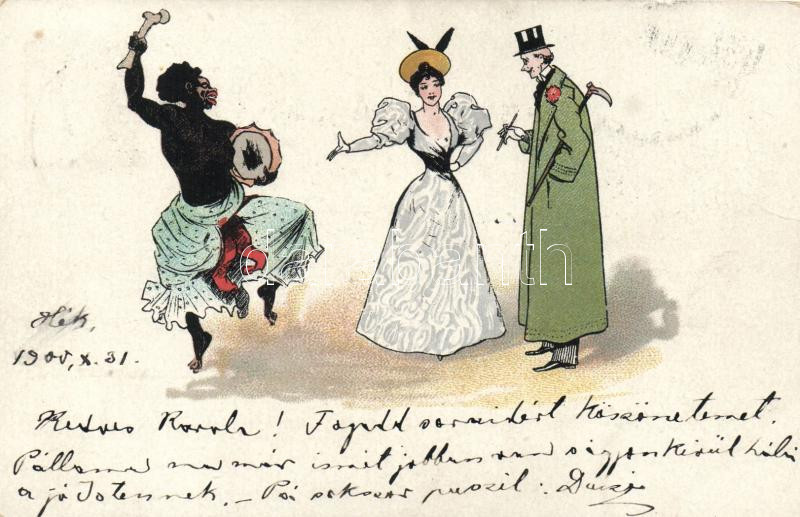 Hék,
1905, X. 31.
Kedves Karola! Fogadd soraidért köszönetemet.
már ismét jobban van hála
a jó Istennek. - Pá sokszor puszil: Daisy
darabanth